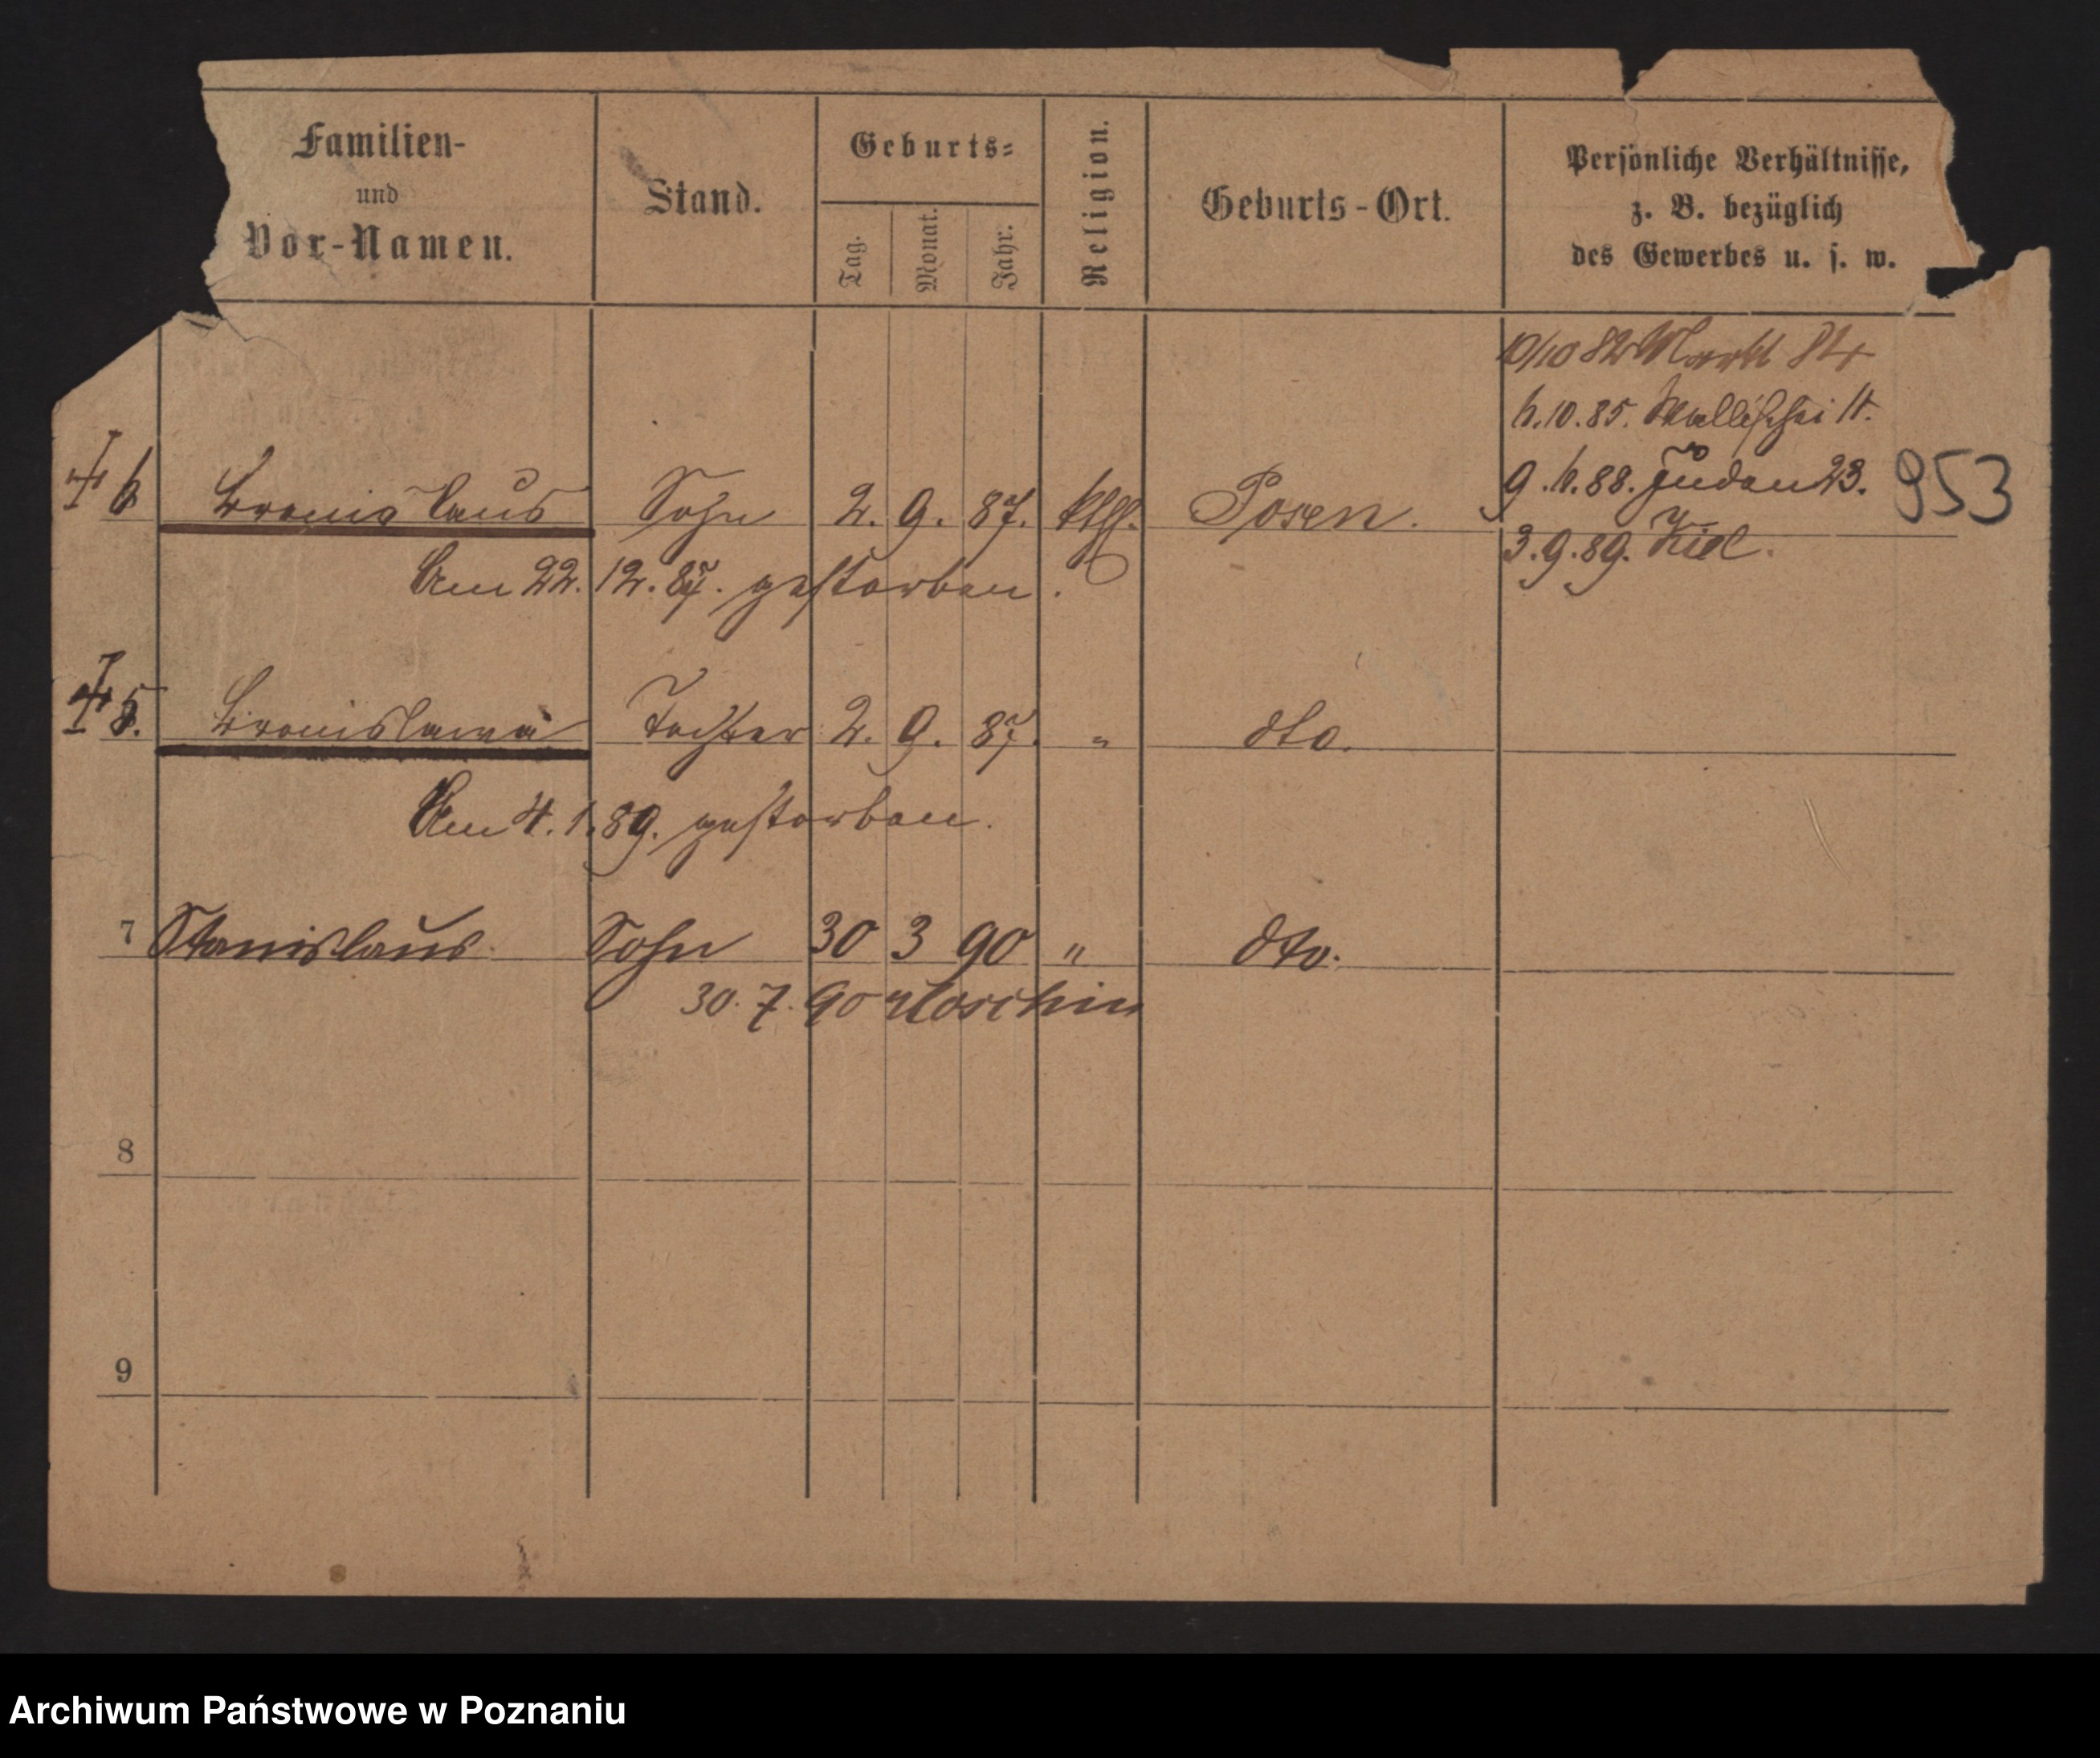 Familien-
und
Vor-Namen.
Stand.
Geburts-
Tag.
Monat.
Jahr.
Religion.
Geburts-Ort.
Persönliche Verhältnisse,
z. B. bezüglich
des Gewerbes u. s. w.
10/10 82 Markt 84
6.10.85. Wallischei 11.
9.6.88. Juden 23.
3.9.89. Kiel.
953
6 Bronislaus Sohn 2. 9. 87. kthl. Posen.
Am 22.12.87. gestorben.
5. Bronislawa Tochter 2. 9. 87. " dto.
Am 4.1.89. gestorben.
7 Stanislaus Sohn 30 3 90 " dto.
30.7.90
8
9
Archiwum Państwowe w Poznaniu